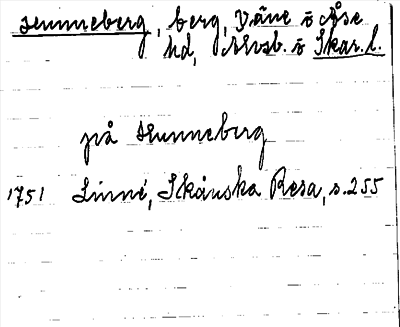 Hunneberg, berg, Väne o Åse
hd, Älvsb. o Skar. l.
på Hunneberg
1751 Linné, Skånska Resa, s. 255